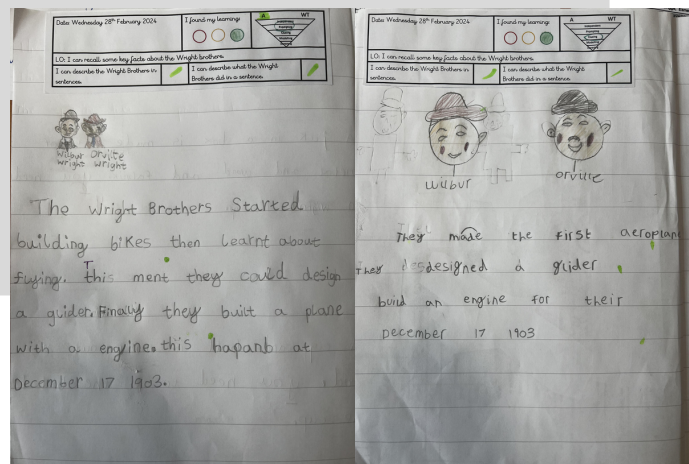 Date: Wednesday 28th February 2024
I found my learning:
A WT
LO: I can recall some key facts about the Wright brothers.
I can describe the Wright Brothers in sentences.
I can describe what the Wright Brothers did in a sentence.
Wilbur Orvilte
Wright Wright
The Wright Brothers Started
building bikes then learnt about
flying. This ment they could design
a glider. Finally they built a plane
with a engine. this hapanb at
December 17 1903.
Date: Wednesday 28th February 2024
I found my learning:
A WT
LO: I can recall some key facts about the Wright brothers.
I can describe the Wright Brothers in sentences.
I can describe what the Wright Brothers did in a sentence.
wilbur orville
They made the first aeroplane
They designed a glider
build an engine for their
December 17 1903